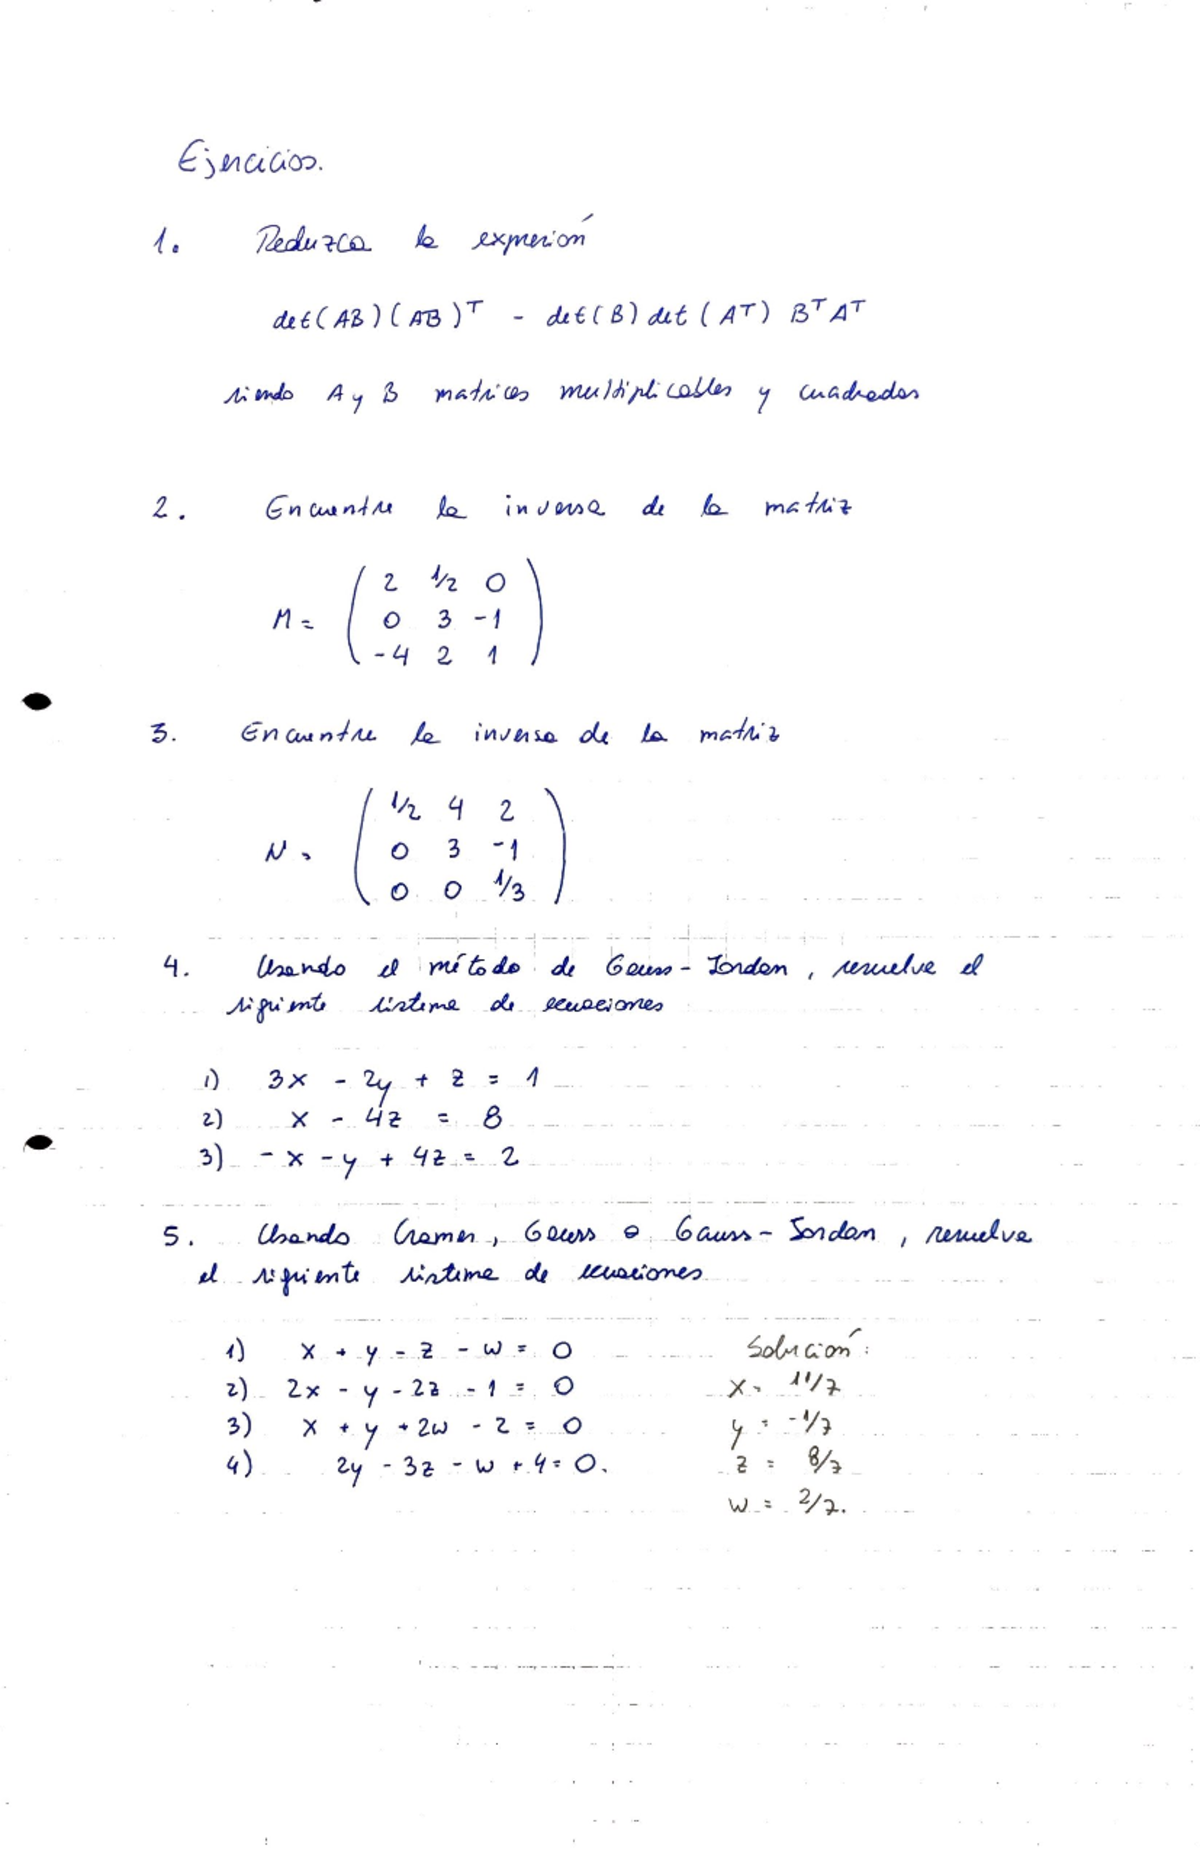 Ejercicios.
1. Reduzca la expresión
det(AB)(AB)ᵀ - det(B) det(Aᵀ) BᵀAᵀ
siendo A y B matrices multiplicables y cuadradas
2. Encuentre la inversa de la matriz
2 1/2 0
M = 0 3 -1
-4 2 1
3. Encuentre la inversa de la matriz
1/2 4 2
N = 0 3 -1
0 0 1/3
4. Usando el método de Gauss-Jordan, resuelve el
siguiente sistema de ecuaciones
1) 3x - 2y + z = 1
2) x - 4z = 8
3) -x - y + 4z = 2
5. Usando Cramer, Gauss o Gauss-Jordan, resuelva
el siguiente sistema de ecuaciones
1) x + y - z - w = 0 Solución:
2) 2x - y - 2z - 1 = 0 x = 11/7
3) x + y + 2w - 2 = 0 y = -1/7
4) 2y - 3z - w + 4 = 0. z = 8/7
w = 2/7.